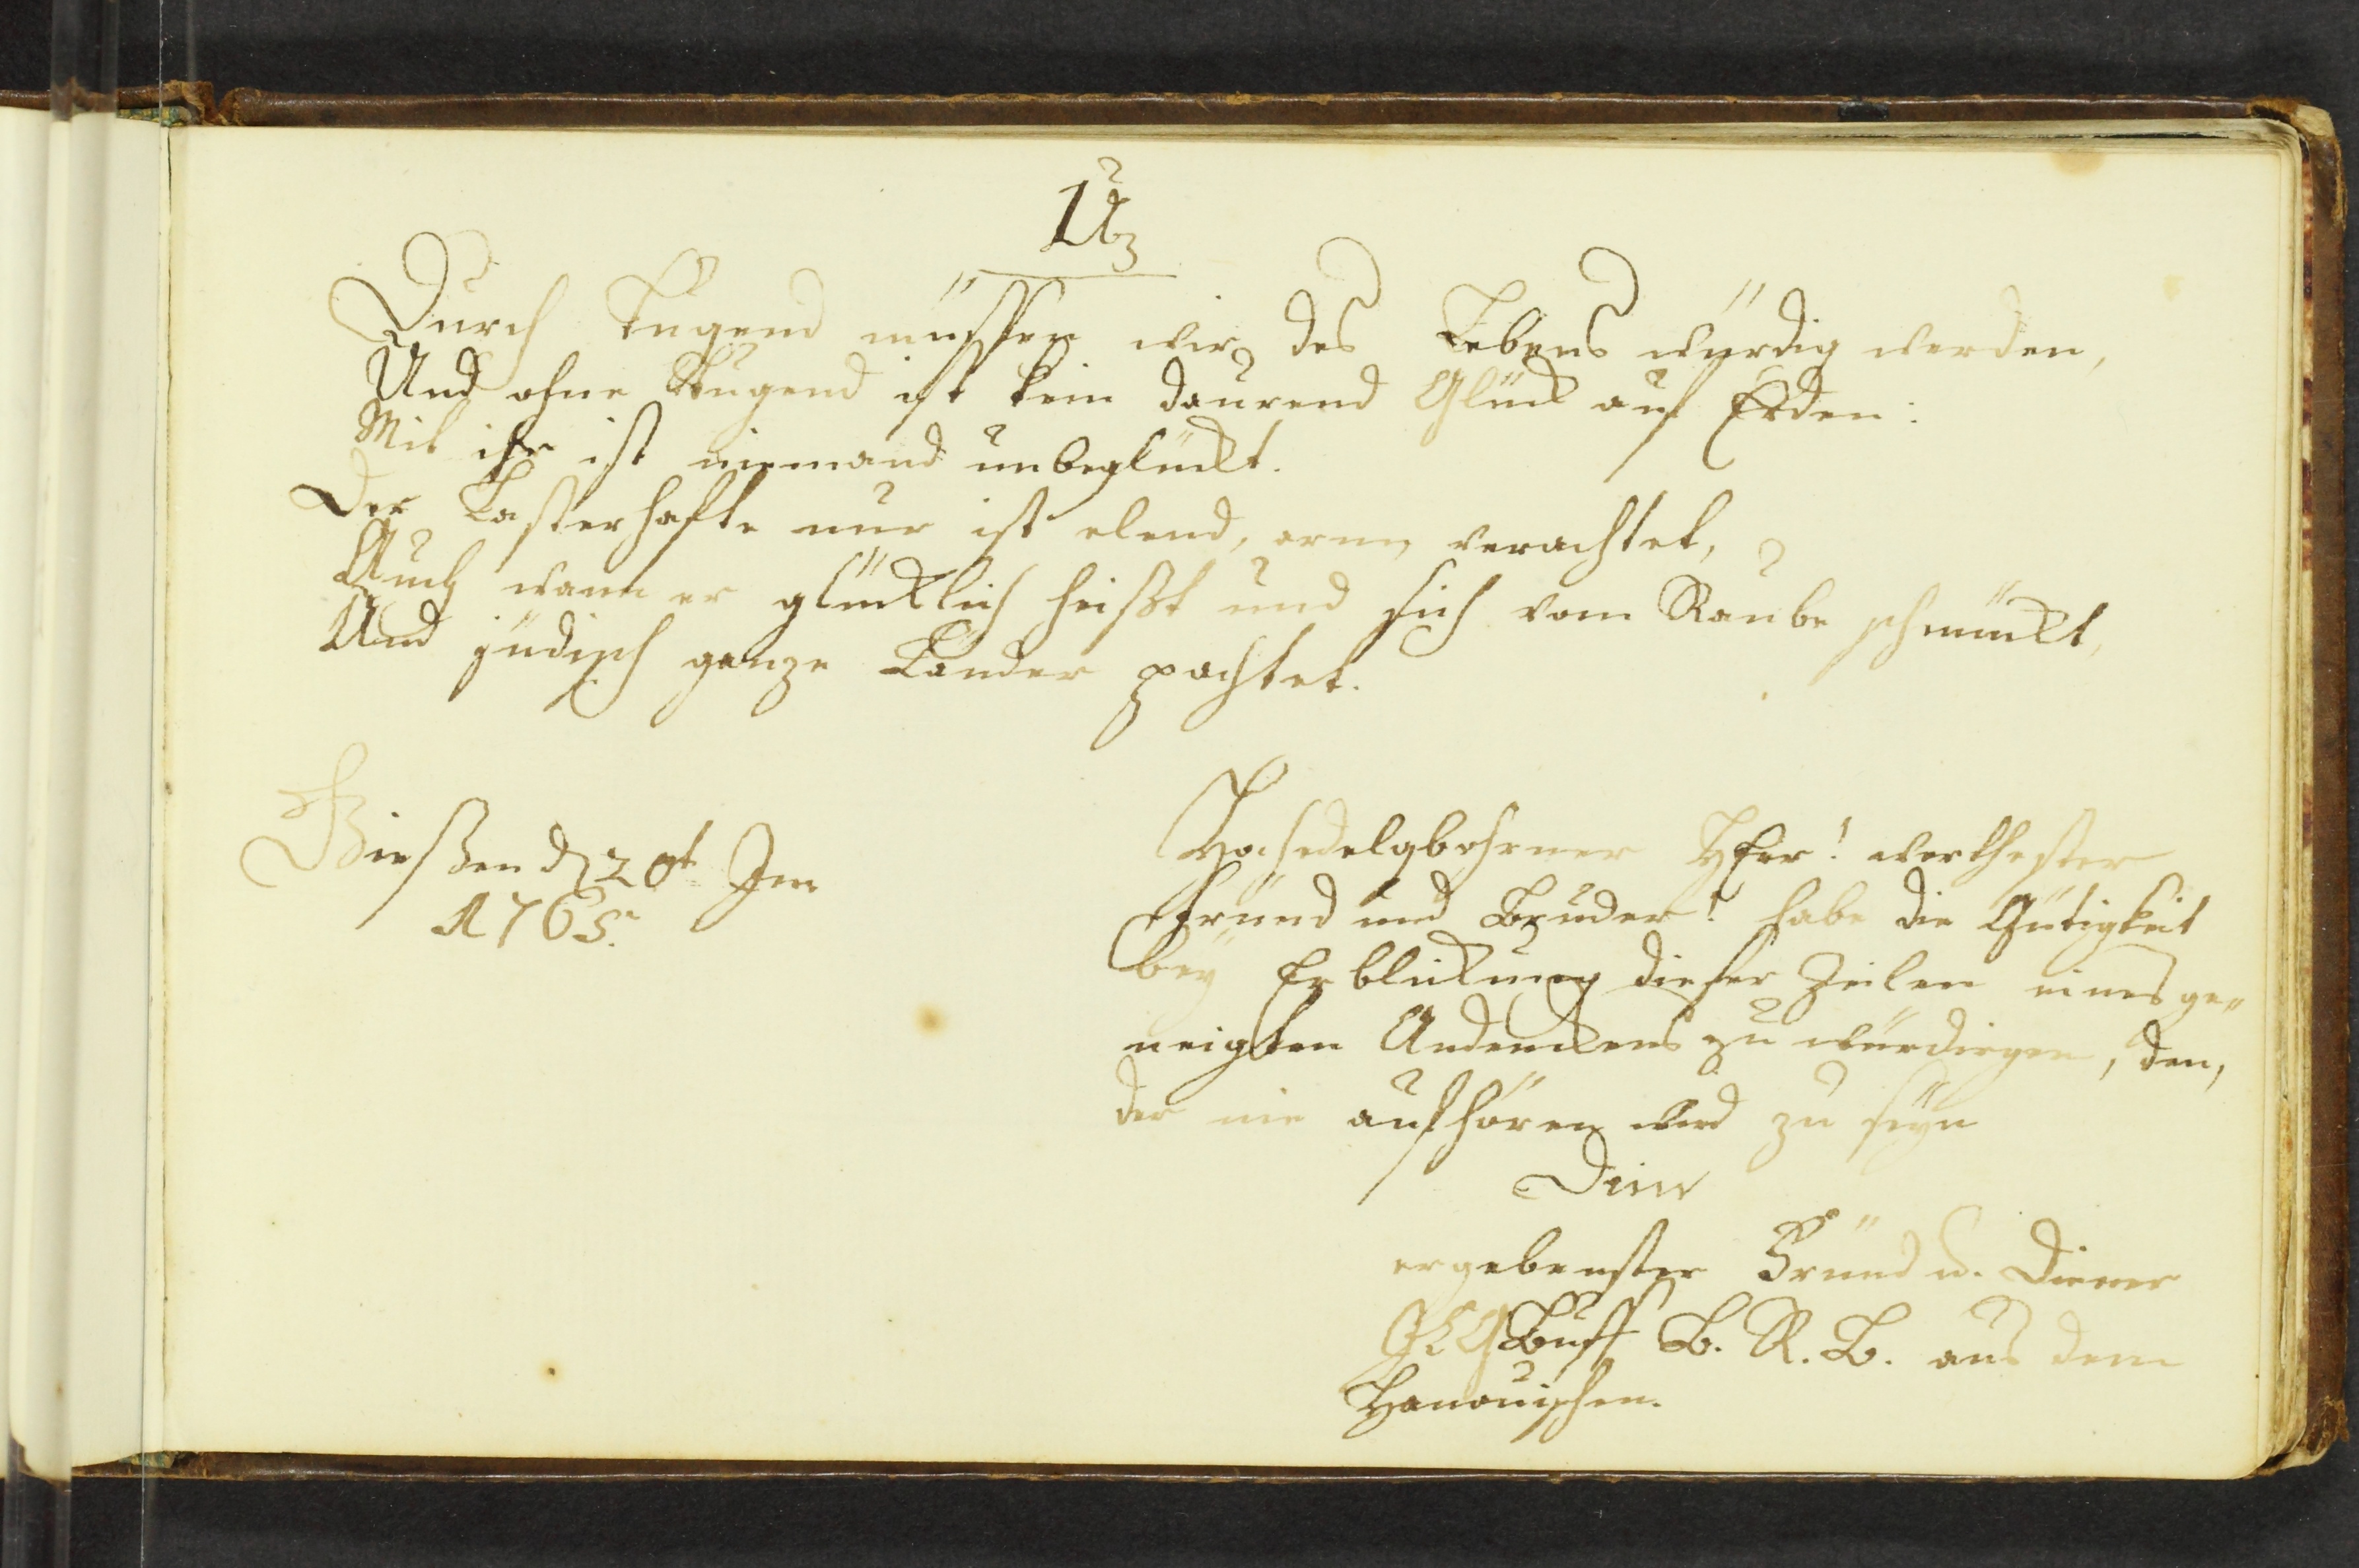 Uz
Durch Tugend müssen wir des Lebens würdig werden,
Und ohne Tugend ist kein daurend Glück auf Erden:
Mit ihr ist niemand unbeglückt.
Der Lasterhafte nur ist elend, arm, verachtet,
Auch wann er glücklich heißt und sich vom Raube schmückt,
Und jüdisch ganze Länder pachtet.
Gießen d 20t
1765.
Hochedelgbohrner HErr! werthester
Freünd und Bruder! habe die Gütigkeit
bey Erblickung dieser Zeilen eines ge-
neigten Andenckens zu würdigen, den,
der nie aufhören wird zu seyn
Dein
ergebenster Freünd u. Diener
Buff B. R. B. aus dem
Hanauischen.